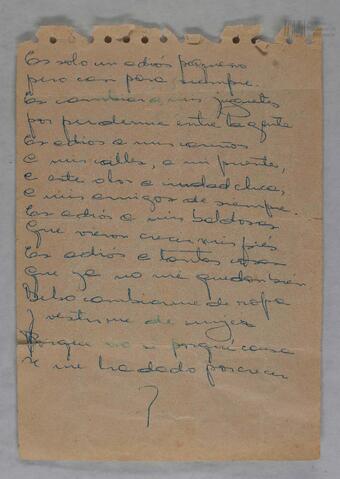 Es solo un adiós pequeño
pero casi para siempre.
Es cambiar a mis juguetes
por perderme entre la gente
Es adiós a mis
a mis calles, a mi puente,
a este olor a ciudad chica,
a mis amigos de siempre.
Es adiós a mis baldosas
Que vieron crecer mis pies
Es adiós a tantas cosas
Que ya no me quedan bien
Debo cambiarme de ropa
y vestirme de mujer
Porque no se porqué causa
se me ha dado por crecer
?